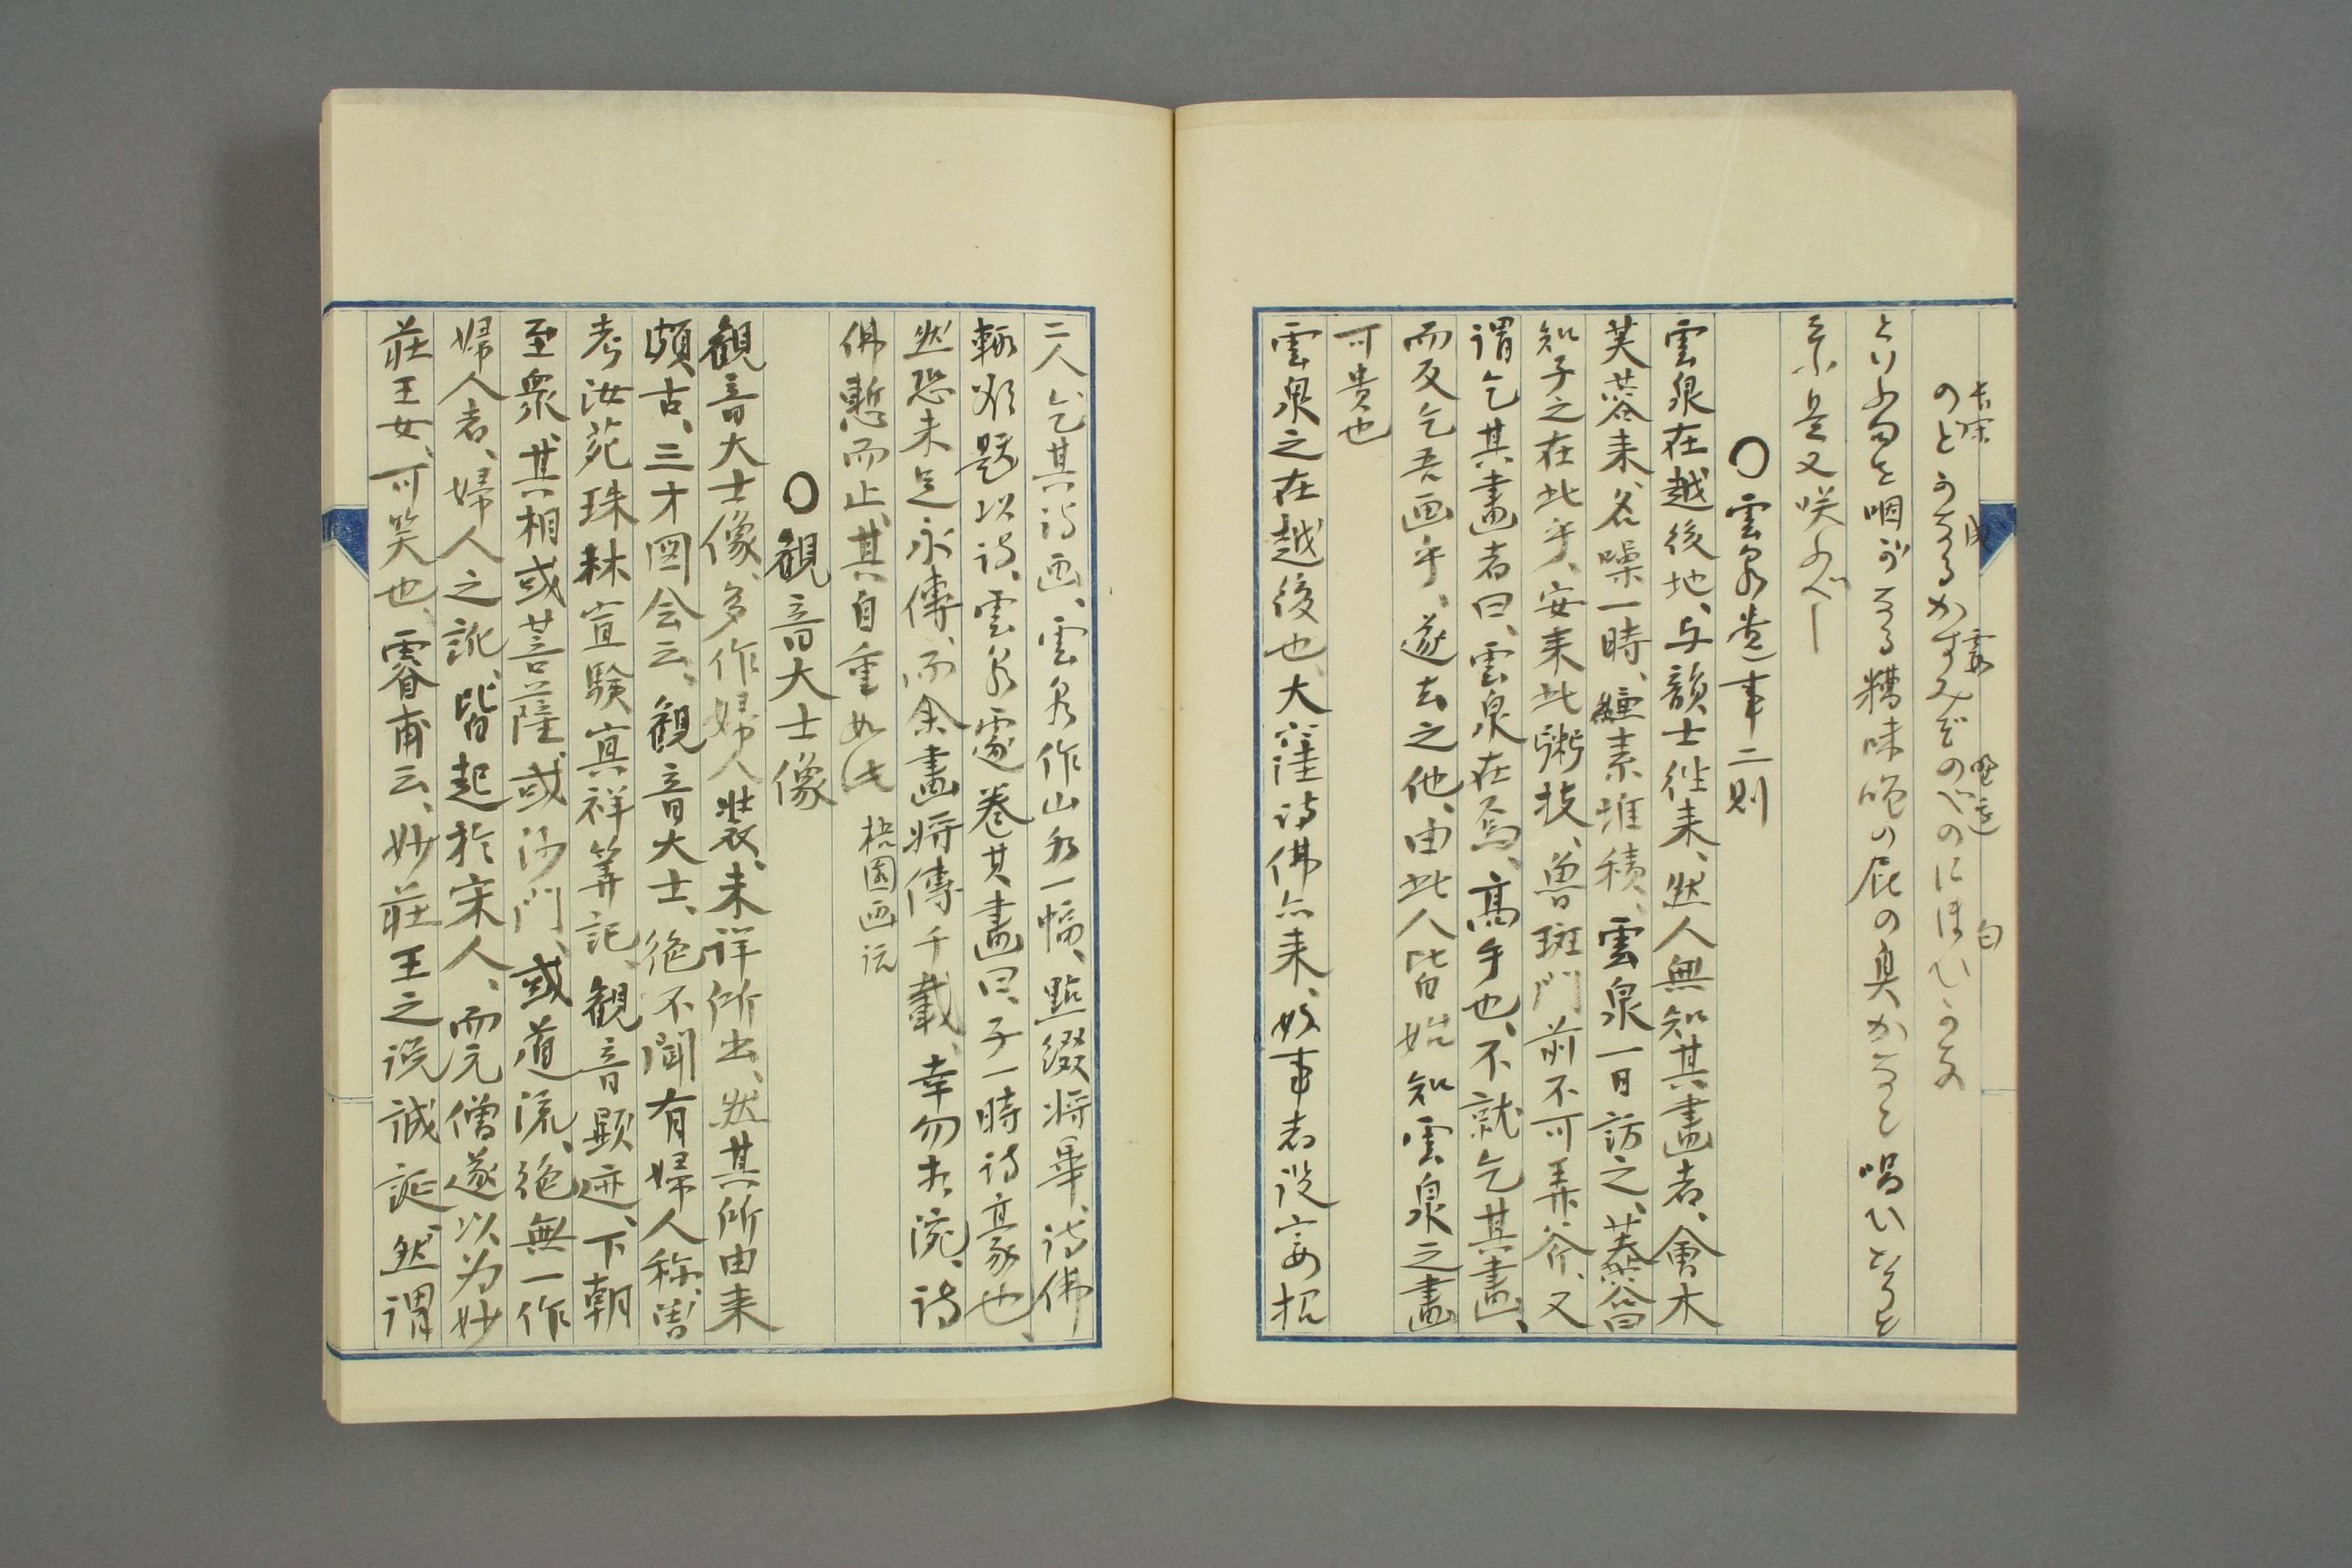 のとかなるかすみぞのべのにほひかな
といふ句を咽がなる糟味噌の屁の臭かなと唱ひとると
云ふ是又咲ふべし
〇雲泉逸事二則
雲泉在越後地、与韻士徃来、然人無知其畫者、會木
芙蓉来、名噪一時、縑素堆積、雲泉一日訪之、芙蓉曰
知子之在此乎、安来此粥技、魯班門前不可弄斧、又
謂乞其畫者曰、雲泉在焉、高手也、不就乞其畫、
而反乞吾画乎、遂去之他、由此人皆始知雲泉之畫
可貴也
雲泉之在越後也、大窪詩佛亦来、好事者設宴招
二人、乞其詩画、雲泉作山水一幅、點綴将畢、詩佛
輙欲題以詩、雲泉遽巻其畫曰、子一時詩豪也、
然恐未足永傳、而余畫将傳千載、幸勿点涴、詩
佛慙而止、其自重如此 梧園画話
〇観音大士像
観音大士像、多作婦人裝、未詳所出、然其所由来
頗古、三才図会云、観音大士、絶不聞有婦人称、
考汝苑珠林宣験冥祥等記、観音顕迹、下朝
至衆、其相或菩薩、或沙門、或道流、絶無一作
婦人者、婦人之訛、皆起於宋人、而元僧遂以为妙
莊王女、可笑也、睿甫云、妙莊王之説誠誕、然謂